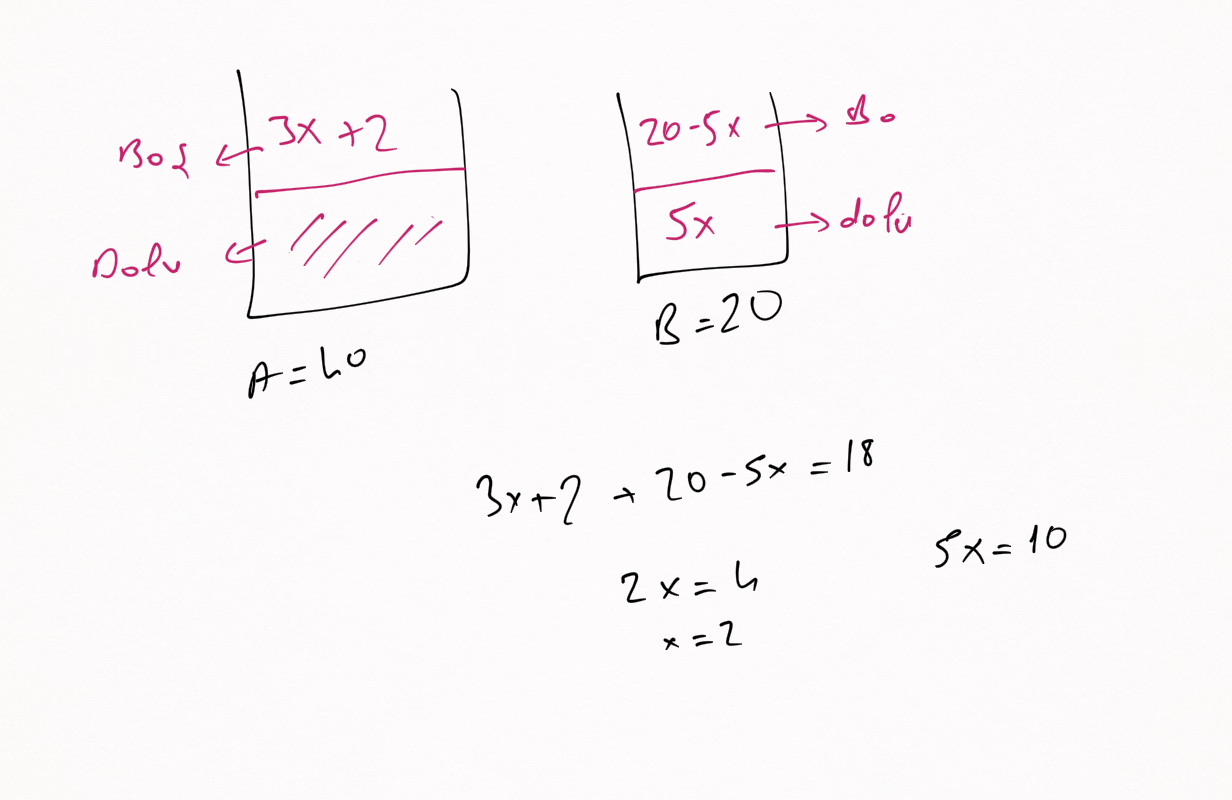 Boş ← 3x + 2
Dolu ←
A = 40
20 - 5x → Bo
5x → dolu
B = 20
3x + 2 + 20 - 5x = 18
2x = 4
x = 2
5x = 10